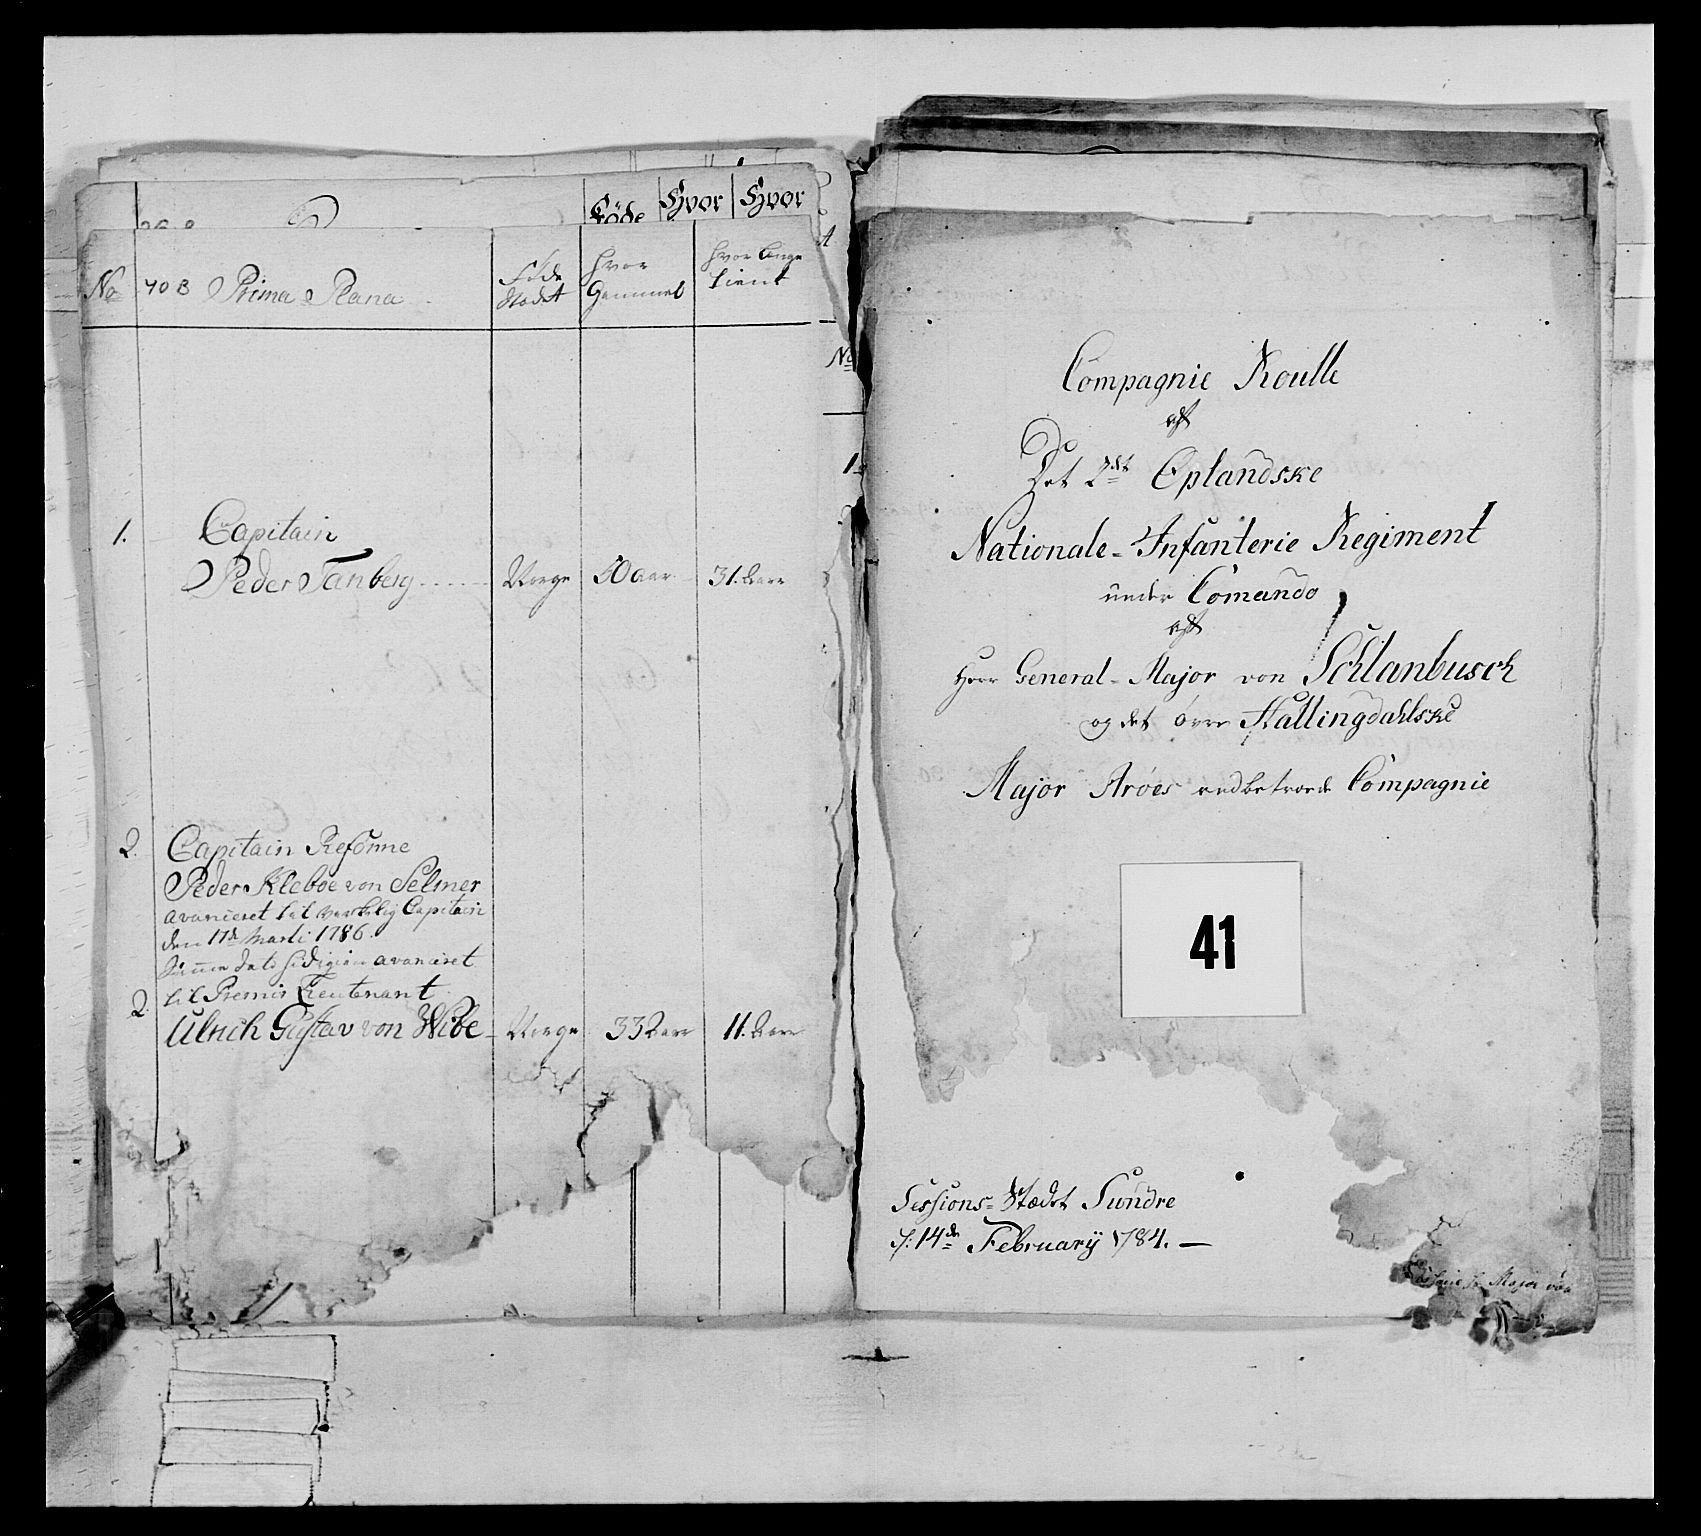 Føde Hvor Hvor
No 40 B Prima Plana Føde Stædet hvor Gammel hvor længe tient
1. Capitain
Peder Tanberg Norge 50 aar 31. Aar
2. Capitain Reformé
Peder Kleboe von Selmer
avanceret til verkelig Capitain
den 17de Marti 1786.
avanceret
2. til Premier Lieutenant
Ulrich Gustav von Wibe Norge 33 Aar 11. Aar
No
1
Compagnie Roulle
aft
Det 2det Oplandske
Nationale-Infanterie Regiment
under Comando
aft
Herr General-Major von Schlanbusch
og det øvre Hallingdahlske
Major Arøes vedbetroede Compagnie
41
Sessions-Stædet Sundre
d: 14de February 1784.
Major von